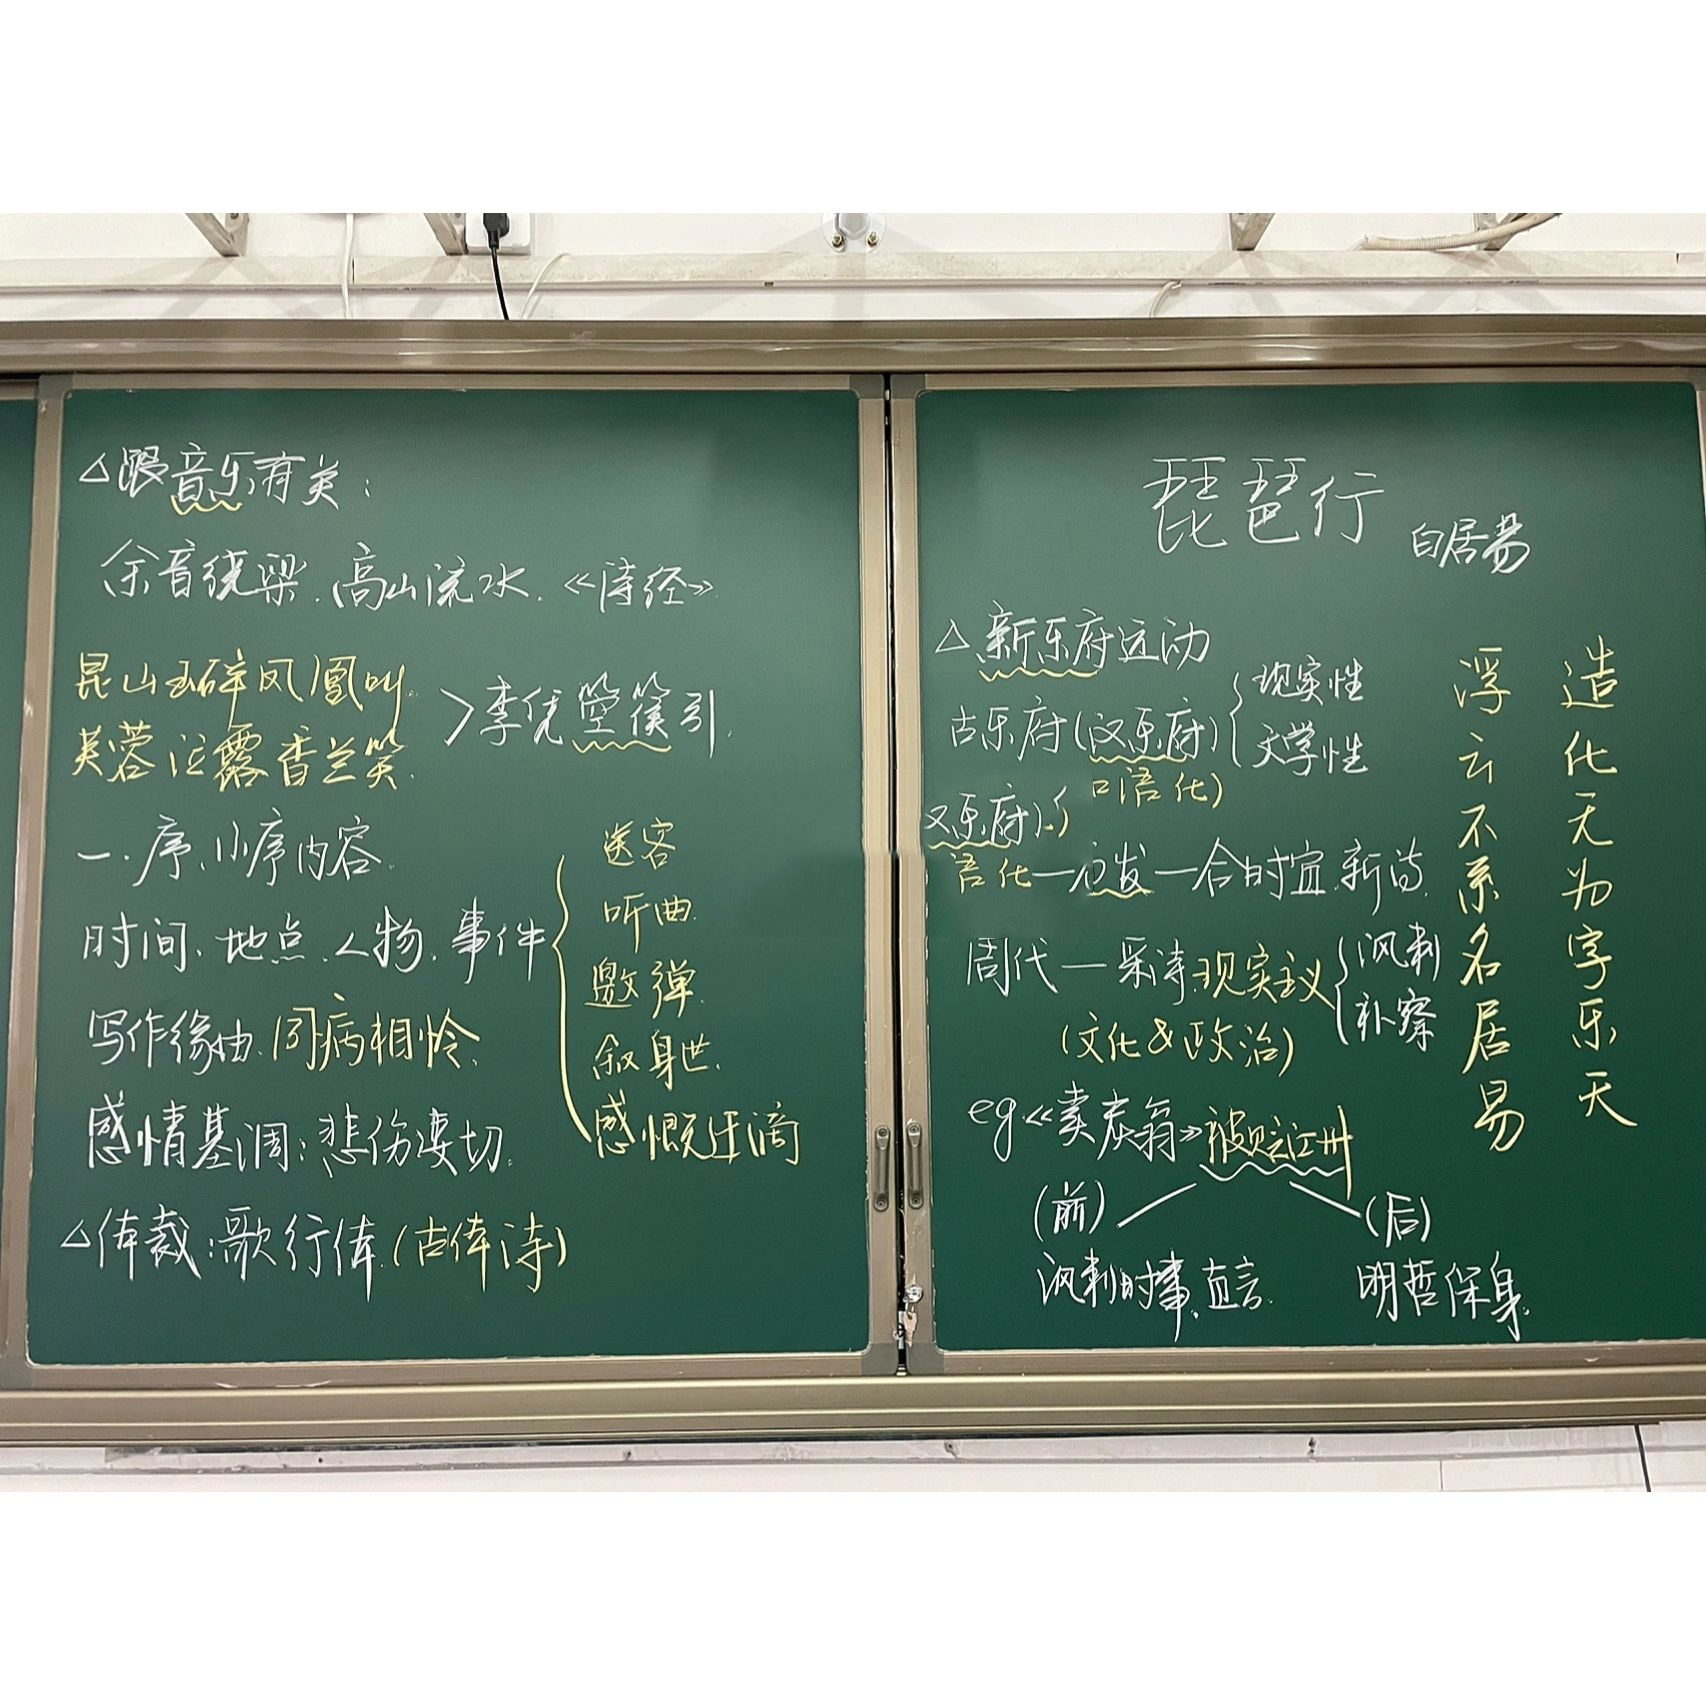 △跟音乐有关:
余音绕梁.高山流水.《诗经》
昆山玉碎凤凰叫.
芙蓉泣露香兰笑.
>李凭箜篌引.
一.序.小序内容.
时间.地点.人物.事件
送客
听曲.
邀弹.
叙身世.
感慨迁谪
写作缘由.同病相怜.
感情基调:悲伤凄切.
△体裁:歌行体.(古体诗)
琵琶行
白居易
△新乐府运动
古乐府(汉乐府)
现实性
文学性
口语化)
乐府
语化—发—合时宜.新诗.
周代—采诗.现实主义
讽刺
补察
(文化&政治)
eg《卖炭翁》被贬江州
(前)
(后)
讽刺时事.直言.
明哲保身.
造化无为字乐天
浮云不系名居易